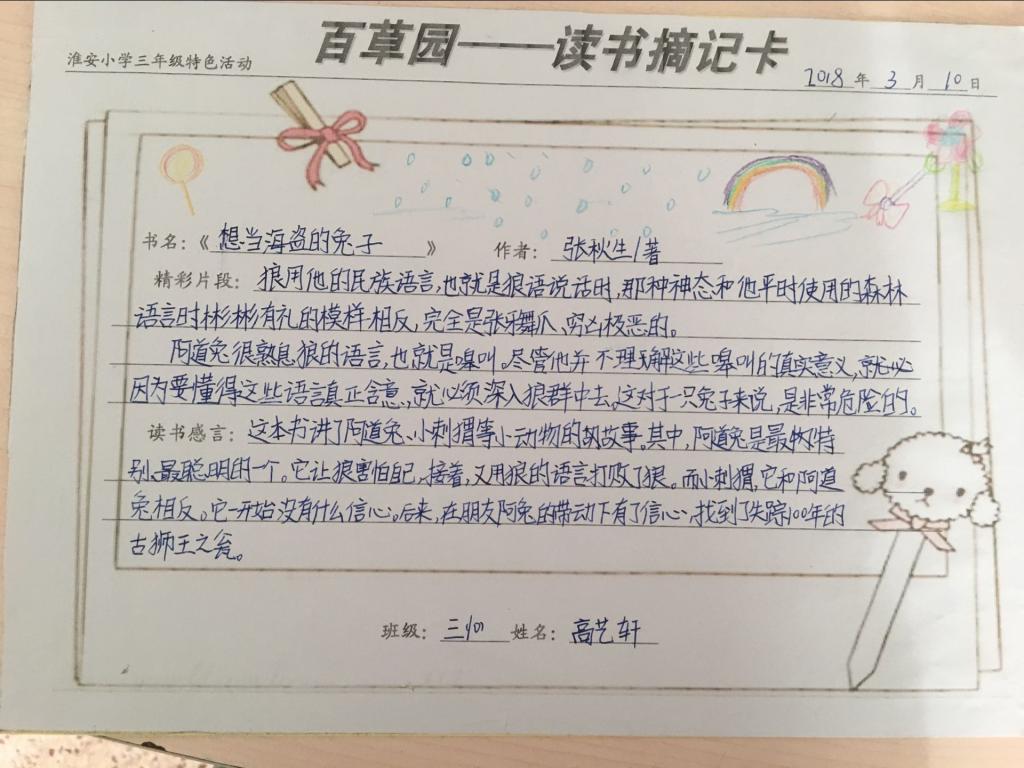 淮安小学三年级特色活动
百草园——读书摘记卡
2018年3月10日
书名：《想当海盗的兔子》 作者：张秋生/著
精彩片段：狼用他的民族语言，也就是狼语说话时，那种神态和他平时使用的森林
语言时彬彬有礼的模样相反，完全是张牙舞爪、穷凶极恶的。
阿道兔很熟悉狼的语言，也就是嗥叫。尽管他并不理解这些嗥叫的真实意义，就必
因为要懂得这些语言真正含意，就必须深入狼群中去。这对于一只兔子来说，是非常危险的。
读书感言：这本书讲了阿道兔、小刺猬等小动物的故事。其中，阿道兔是最特
别、最聪明的一个。它让狼害怕自己，接着，又用狼的语言打败了狼。而小刺猬，它和阿道
兔相反。它一开始没有什么信心。后来，在朋友阿兔的带动下有了信心，找到了失踪100年的
古狮王之瓮。
班级：三 姓名：高艺轩